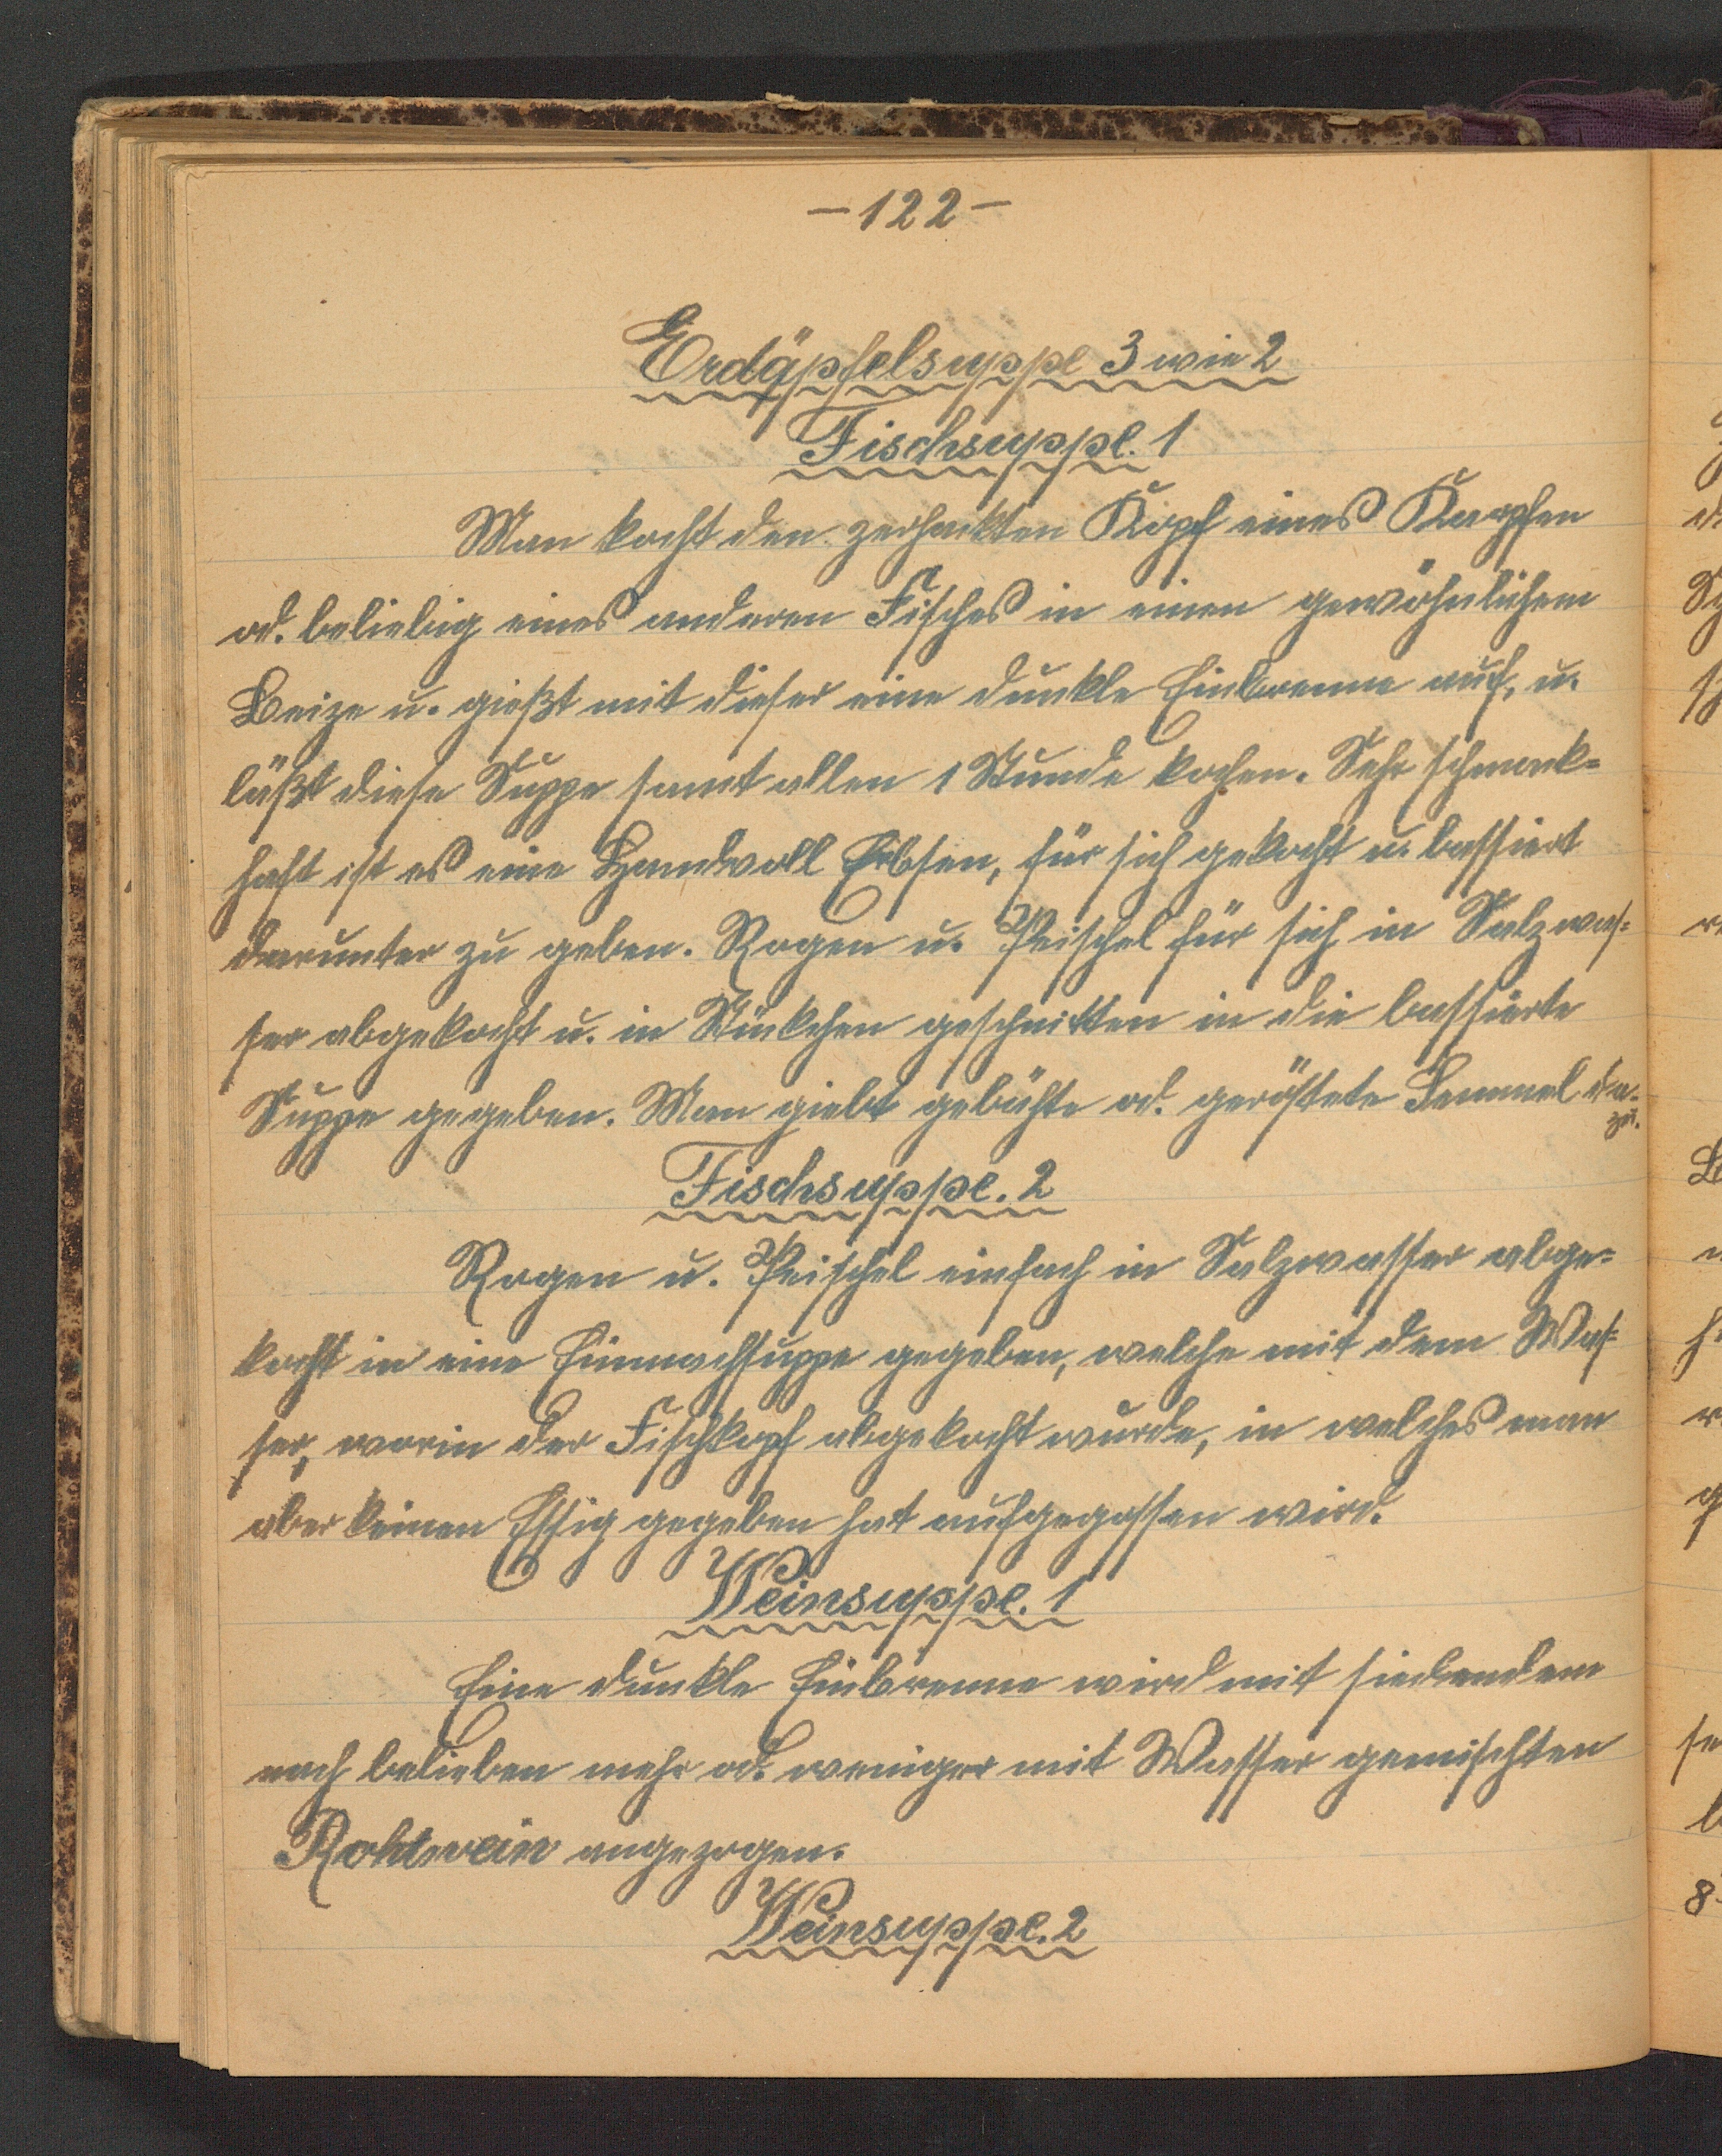 -122-
Erdäpfelsuppe 3 wie 2
Fischsuppe. 1
Man kocht den zerhackten Kopf eines Karpfen
od. beliebig eines anderen Fisches in einen gewöhnlichem
Beize u. gießt mit dieser eine dunkle Einbrenne auf, u.
läßt diese Suppe samt allen 1 Stunde kochen. Sehr schmack=
haft ist es eine Handvoll Erbsen, für sich gekocht u. bassiert
darunter zu geben. Rogen u. Peischel für sich in Salzwas=
ser abgekocht u. in Stückchen geschnitten in die bassierte
Suppe gegeben. Man giebt gebähte od. geröstete Semmel da=
zu.
Fischsuppe. 2
Rogen u. Peischel einfach in Salzwasser abge=
kocht in eine Einmachsuppe gegeben, welche mit dem Was=
ser, worin der Fischkopf abgekocht wurde, in welches man
aber keinen Essig gegeben hat aufgegossen wird.
Weinsuppe. 1
Eine dunkle Einbrenne wird mit siedendem
nach belieben mehr od. weniger mit Wasser gemischten
Rohtwein angezogen.
Weinsuppe. 2